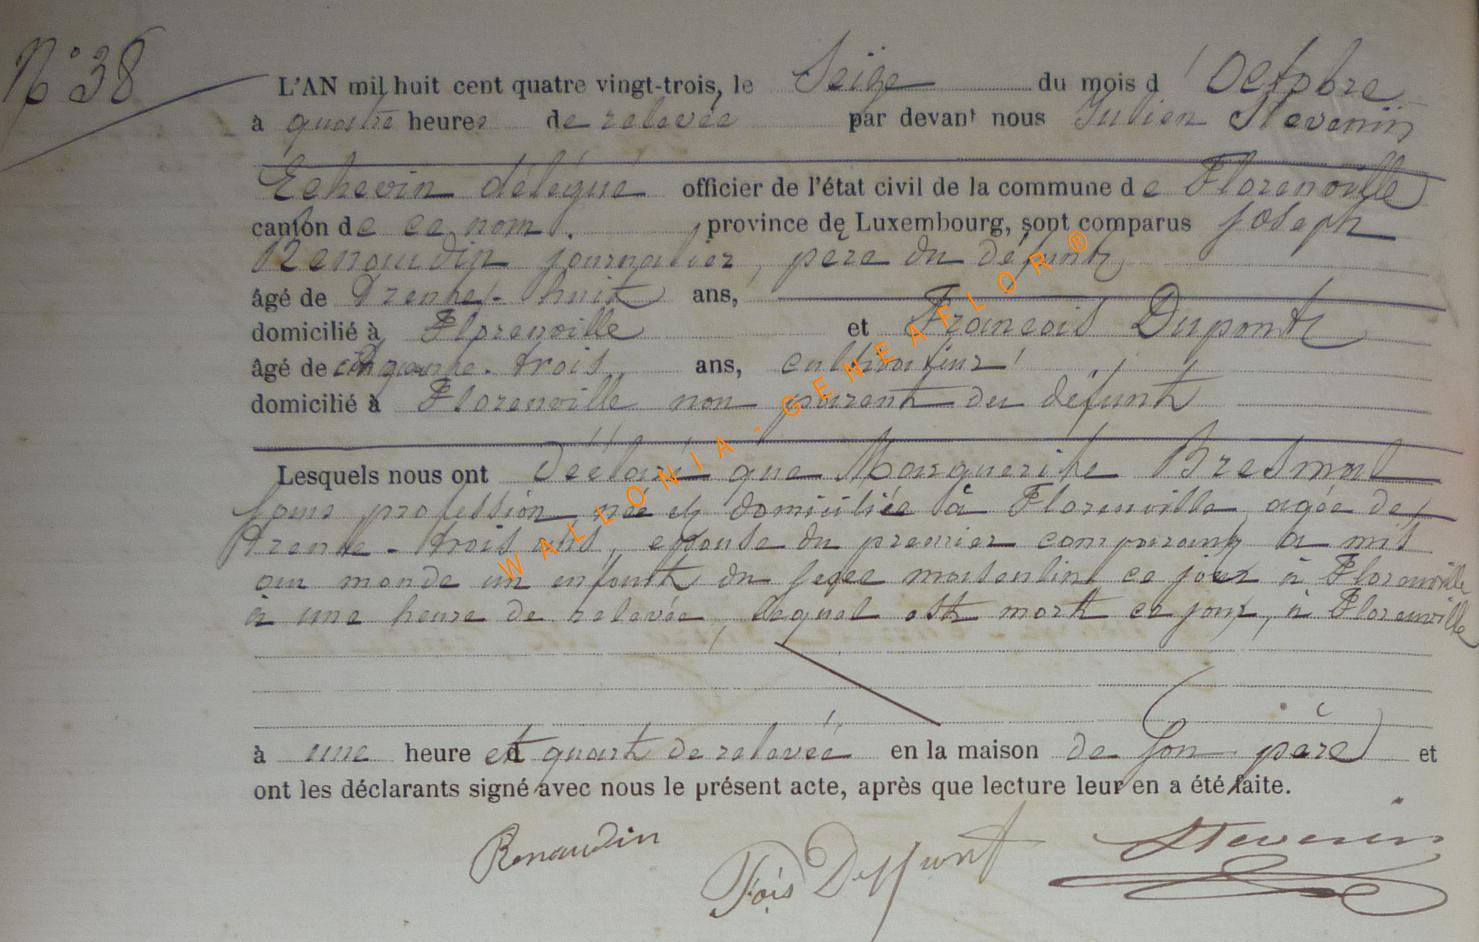 N° 38
L'AN mil huit cent quatre vingt-trois, le Seize du mois d'Octobre
à quatre heures de relevée par devant nous Julien Stevenin
Echevin délégué officier de l'état civil de la commune de Florenville
canton de ce nom, province de Luxembourg, sont comparus Joseph
Renaudin journalier, père du défunt,
âgé de trente-huit ans,
domicilié à Florenville et Francois Dupont
âgé de cinquante-trois ans, cultivateur
domicilié à Florenville non parent du défunt
Lesquels nous ont déclaré que Marguerite
sans profession, née et domiciliée à Florenville, agée de
trente-trois ans, epouse du premier comparant, a mis
au monde un enfant du sexe masculin ce jour à Florenville
à une heure de relevée, lequel est mort ce jour, à Florenville
à une heure et quart de relevée en la maison de son père et
ont les déclarants signé avec nous le présent acte, après que lecture leur en a été faite.
Renaudin
Fois Dupont
Stevenin
WALLONIA - GENEAFLOR ®